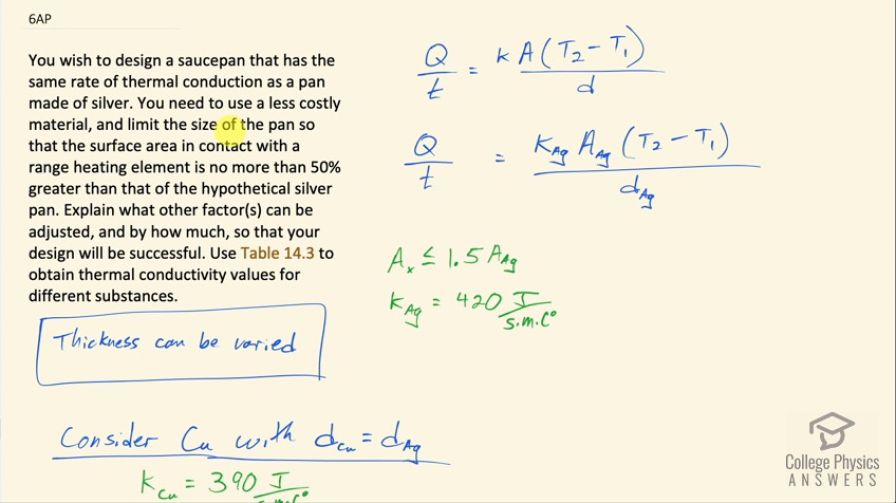 6AP
You wish to design a saucepan that has the
same rate of thermal conduction as a pan
made of silver. You need to use a less costly
material, and limit the size of the pan so
that the surface area in contact with a
range heating element is no more than 50%
greater than that of the hypothetical silver
pan. Explain what other factor(s) can be
adjusted, and by how much, so that your
design will be successful. Use Table 14.3 to
obtain thermal conductivity values for
different substances.
Thickness can be varied
Q/t = k A (T₂ − T₁) / d
Q/t = k_Ag A_Ag (T₂ − T₁) / d_Ag
A_x ≤ 1.5 A_Ag
k_Ag = 420 J/s.m.C°
Consider Cu with d_Cu = d_Ag
k_Cu = 390 J/s.m.C°
College Physics
ANSWERS